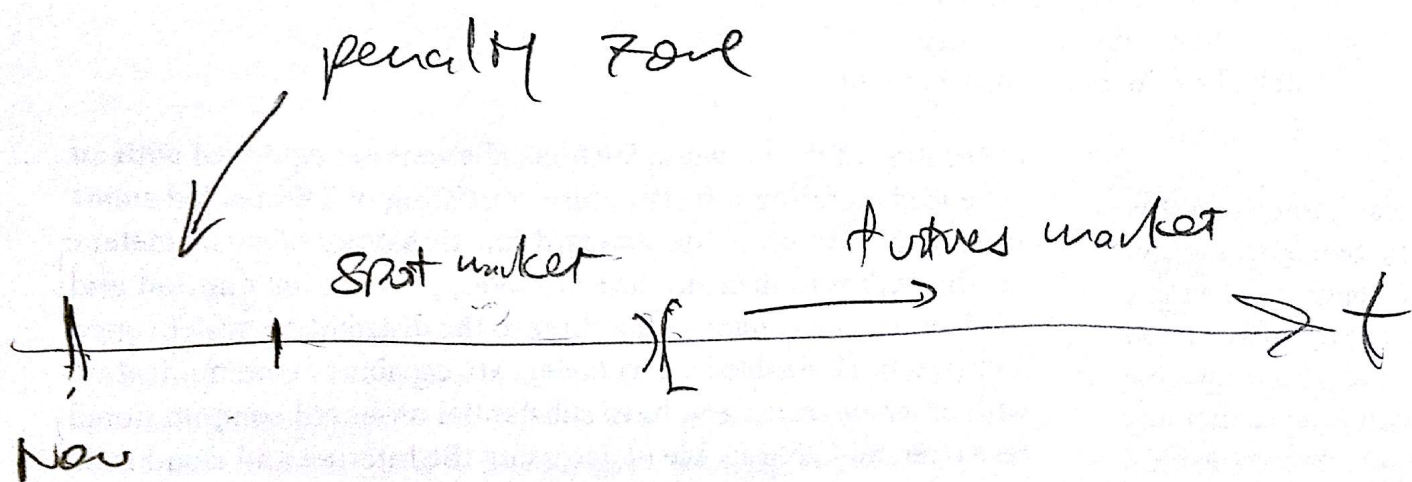 penalty zone
spot market
futures market
t
Now